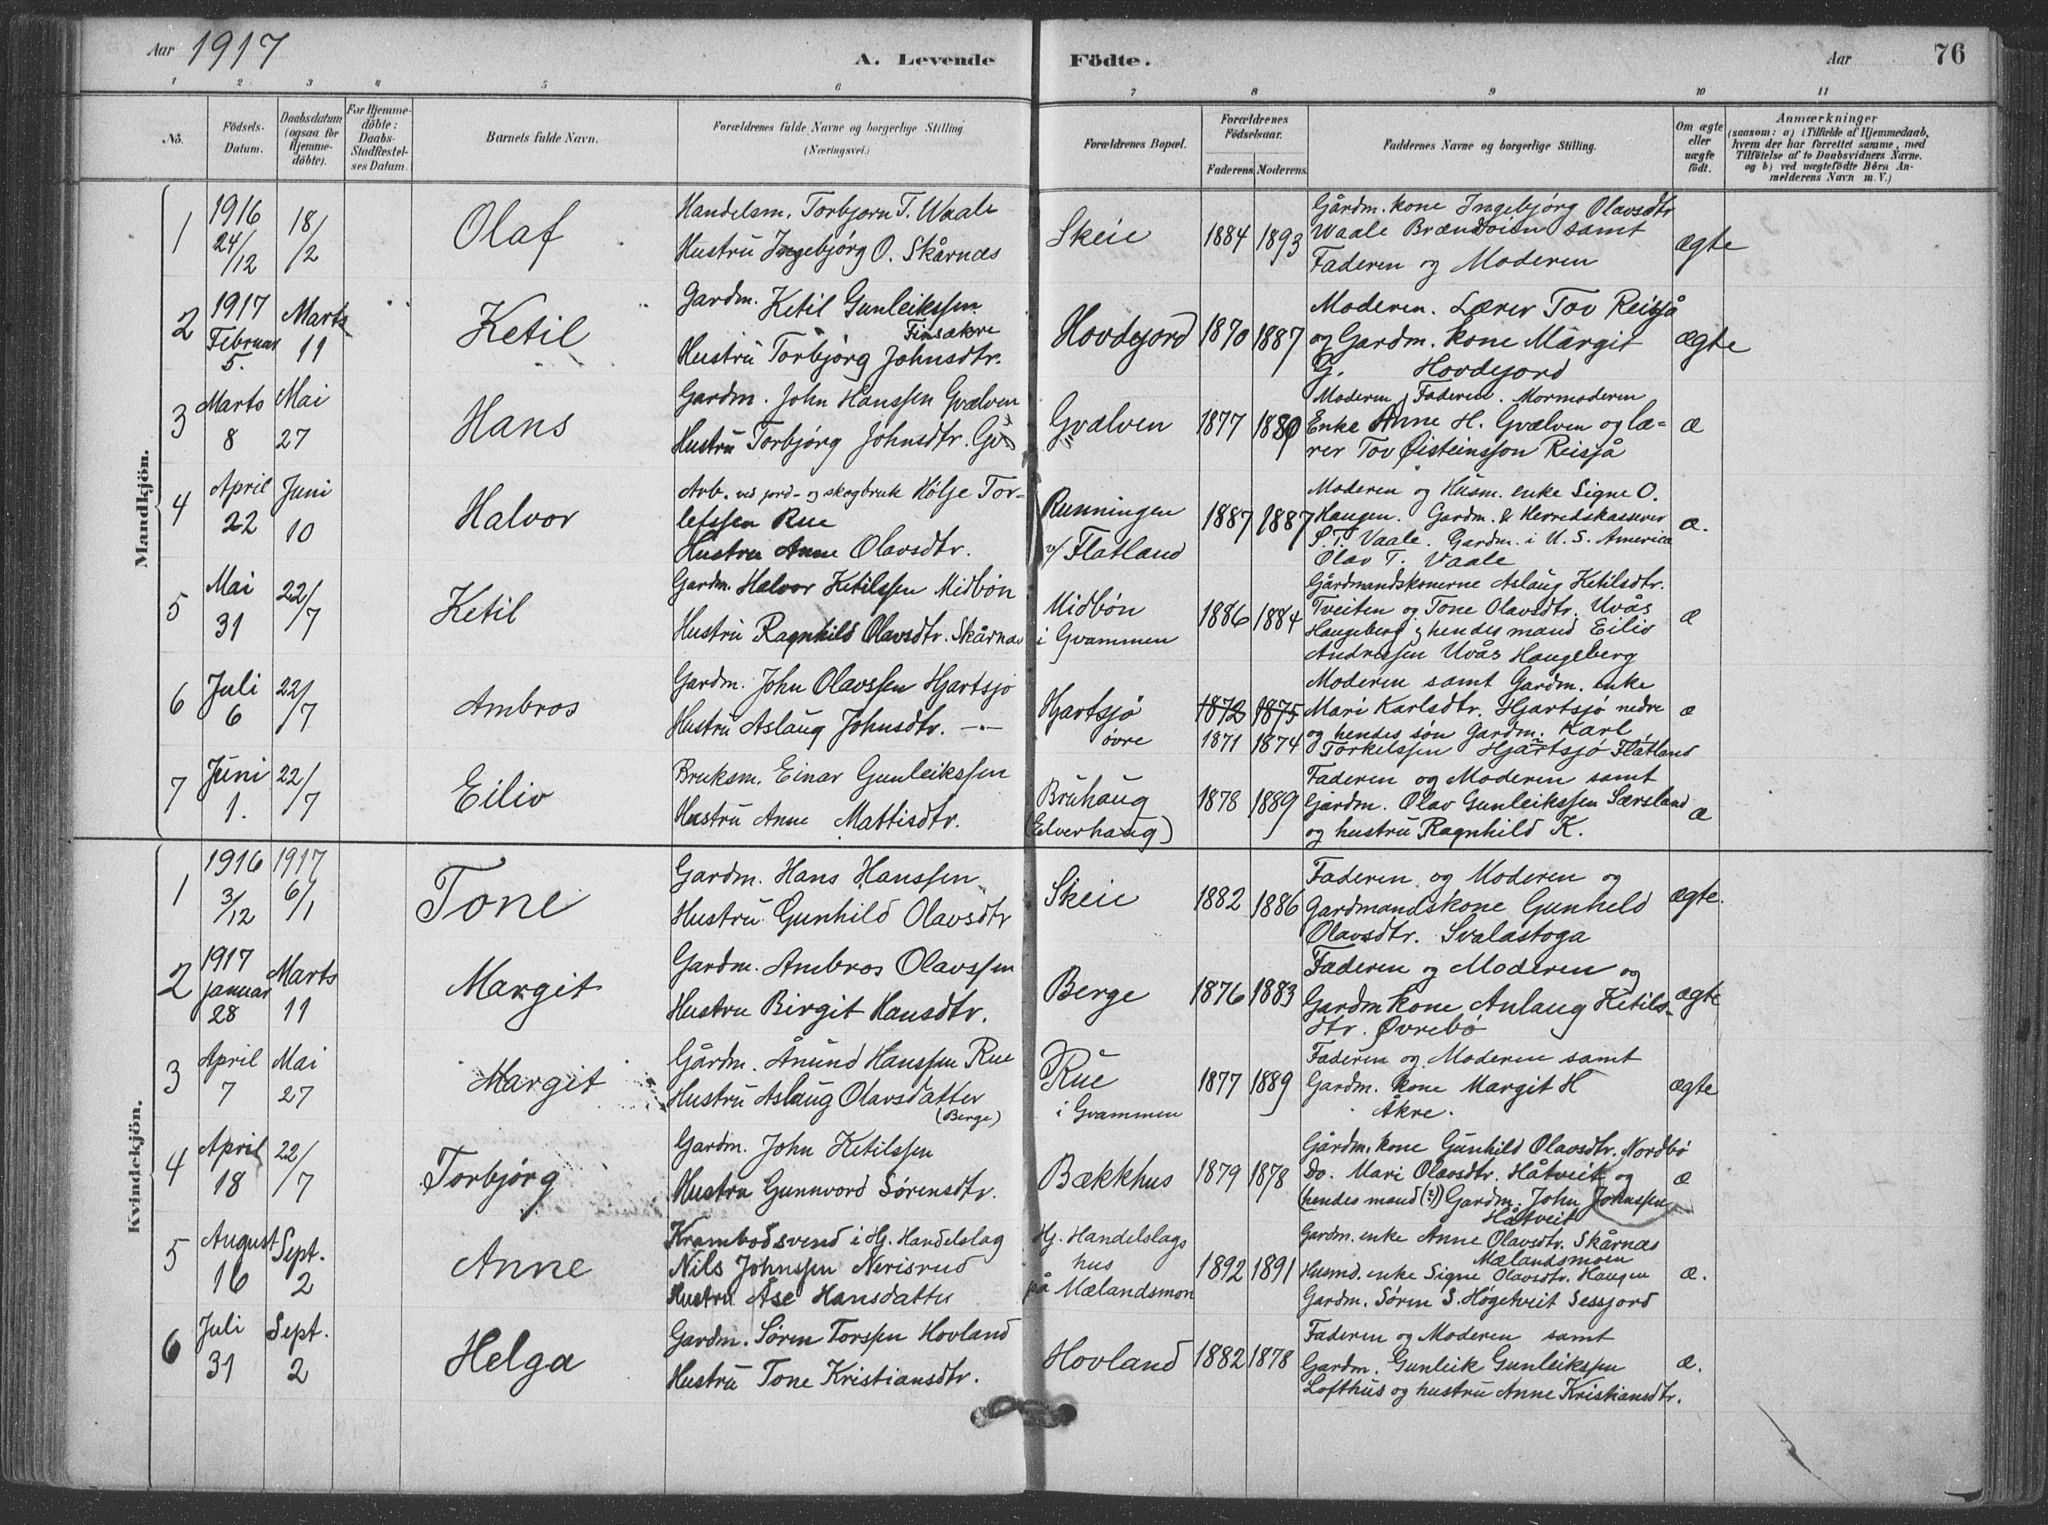 Aar 1917 A. Levende Födte. Aar 76
1 2 3 4 5 6 7 8 9 10 11
No. Födsels-Datum. Daabsdatum (ogsaa for Hjemme-döbte). For Hjemme-döbte: Daabs-Stadfestel-ses Datum. Barnets fulde Navn. Forældrenes fulde Navne og borgerlige Stilling. (Næringsvei.) Forældrenes Bopæl. Forældrenes Födselsaar. Faderens Moderens. Faddernes Navne og borgerlige Stilling. Om ægte eller uægte födt. Anmærkninger (saasom: a) i Tilfælde af Hjemmedaab, hvem der har forrettet samme, med Tilföielse af to Daabsvidners Navne. og b) ved uægtefödte Börn An-melderens Navn m. V.)
Mandkjön.
1 1916 24/12 18/2 Olaf
Handelsm. Torbjorn T. Waale
Hustru Ingebjørg O. Skårnæs
Skeie 1884 1893
Gårdm. kone Ingebjørg Olavsdtr
Waale Brændöien samt
Faderen og Moderen
ægte
2 1917 Februar 5. Marts 11 Ketil
Gardm. Ketil Gunleikssen
Finsakre
Hustru Torbjørg Johnsdtr.
Hovdejord 1870 1887
Moderen. Lærer Tov Reisjå
og Gardm. kone Margit
G. Hovdejord
ægte
3 Marts 8 Mai 27 Hans
Gardm. John Hanssen Gvælven
Hustru Torbjørg Johnsdtr. Gv
Gvælven 1877 1880
Moderen Faderen. Mormoderen
Enke Anne H. Gvælven og læ-
rer Tov Øisteinsson Reisjå
æ
4 April 22 Juni 10 Halvor
Arb. ved jord- og skogbruk Hølje Tor-
lefssen Rue
Hustru Anne Olavsdtr.
Runningen
v/ Flatland
1887 1887
Moderen og Husm. enke Signe O.
Haugen. Gardm. & Herredskasserer
S. T. Vaale. Gardm. i U. S. America
Olav T. Vaale
æ.
5 Mai 31 22/7 Ketil
Gardm. Halvor Ketilssen Midbön
Hustru Ragnhild Olavsdtr. Skårnæs
Midbön
i Gvammen
1886 1884
Gårdmandskonerne Aslaug Ketilsdtr.
Tveiten og Tone Olavsdtr. Uvås
Haugeberg og hendes mand Eiliv
Andressen Uvås Haugeberg
æ
6 Juli 6 22/7 Ambros
Gardm. John Olavssen Hjartsjø
Hustru Aslaug Johnsdtr. —"—
Hjartsjø
øvre
1872 1875
1871 1874
Moderen samt Gardm. enke
Mari Karlsdtr. Hjartsjø nedre
og hendes søn Gardm. Karl
Torkelssen Hjartsjø Flatland
æ
7 Juni 1. 22/7 Eiliv
Bruksm. Einar Gunleikssen
Hustru Anne Mattisdtr.
Bruhaug
(Elverhaug)
1878 1889
Faderen og Moderen samt
Gårdm. Olav Gunleikssen Særsland
og hustru Ragnhild K.
æ
Kvindekjön.
1 1916 3/12 1917 6/1 Tone
Gardm. Hans Hanssen
Hustru Gunhild Olavsdtr
Skeie 1882 1886
Faderen og Moderen og
Gardmandskone Gunhild
Olavsdtr. Svalastoga
ægte.
2 1917 januar 28 Marts 11 Margit
Gardm. Ambros Olavssen
Hustru Birgit Hansdtr.
Berge 1876 1883
Faderen og Moderen og
Gardm kone Anlaug Ketils-
dtr. Øvrebø
ægte
3 April 7 Mai 27 Margit
Gårdm. Ånund Hanssen Rue
Hustru Aslaug Olavsdatter
(Berge)
Rue
i Gvammen
1877 1889
Faderen og Moderen samt
Gardm. kone Margit H
Åkre.
ægte
4 April 18 22/7 Torbjørg
Gardm. John Ketilssen
Hustru Gunnvord Sörensdtr.
Bækkhus 1879 1878
Gårdm. kone Gunhild Olavsdtr. Nordbø
Do. Mari Olavsdtr. Håtveit og
(hendes mand (?)) Gardm. John Johnssen
Håtveit
æ
5 August 16 Sept. 2 Anne
Krambodsvend i Hj. Handelslag
Nils Johnssen Nerisrud
Hustru Åse Hansdatter
Hj. Handelslags
hus
på Mælandsmon
1892 1891
Gardm. enke Anne Olavsdtr. Skårnæs
Mælandsmoen
Husmd. enke Signe Olavsdtr. Haugen
Gardm. Søren S. Høgetveit Sessjord
æ.
6 Juli 31 Sept. 2 Helga
Gardm. Sören Torssen Hovland
Hustru Tone Kristiansdtr.
Hovland 1882 1878
Faderen og Moderen samt
Gardm. Gunleik Gunleikssen
Lofthus og hustru Anne Kristiansdtr.
æ.